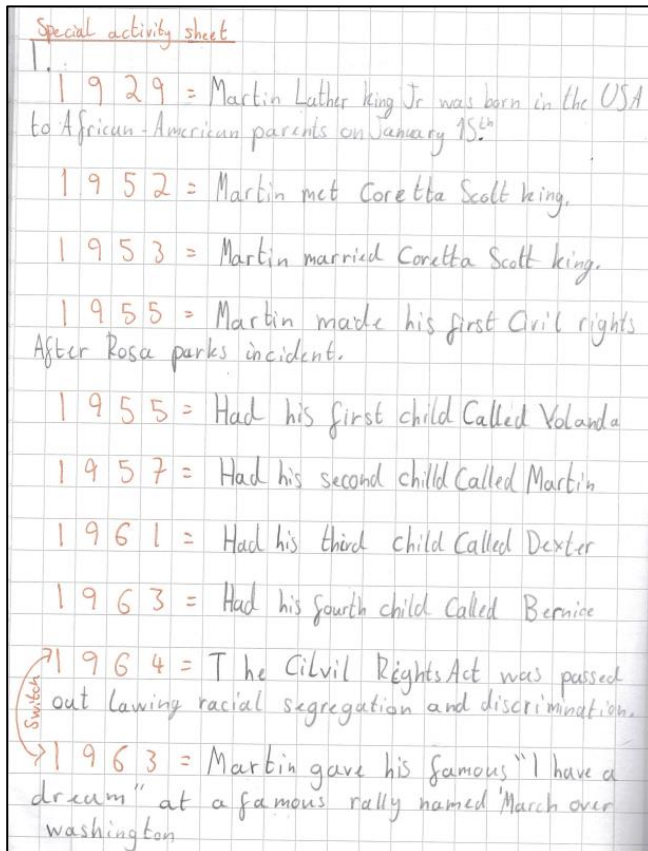 Special activity sheet
1.
1929 = Martin Luther king Jr was born in the USA
to African-American parents on January 15th.
1952 = Martin met Coretta Scott king.
1953 = Martin married Coretta Scott king.
1955 = Martin made his first Civil rights
After Rosa parks incident.
1955 = Had his first child Called Yolanda
1957 = Had his second chilld Called Martin
1961 = Had his third child Called Dexter
1963 = Had his fourth child Called Bernice
Switch
1964 = The Cilvil Rights Act was passed
out lawing racial segregation and discrimination.
1963 = Martin gave his famous "I have a
dream" at a famous rally named 'March over
washington